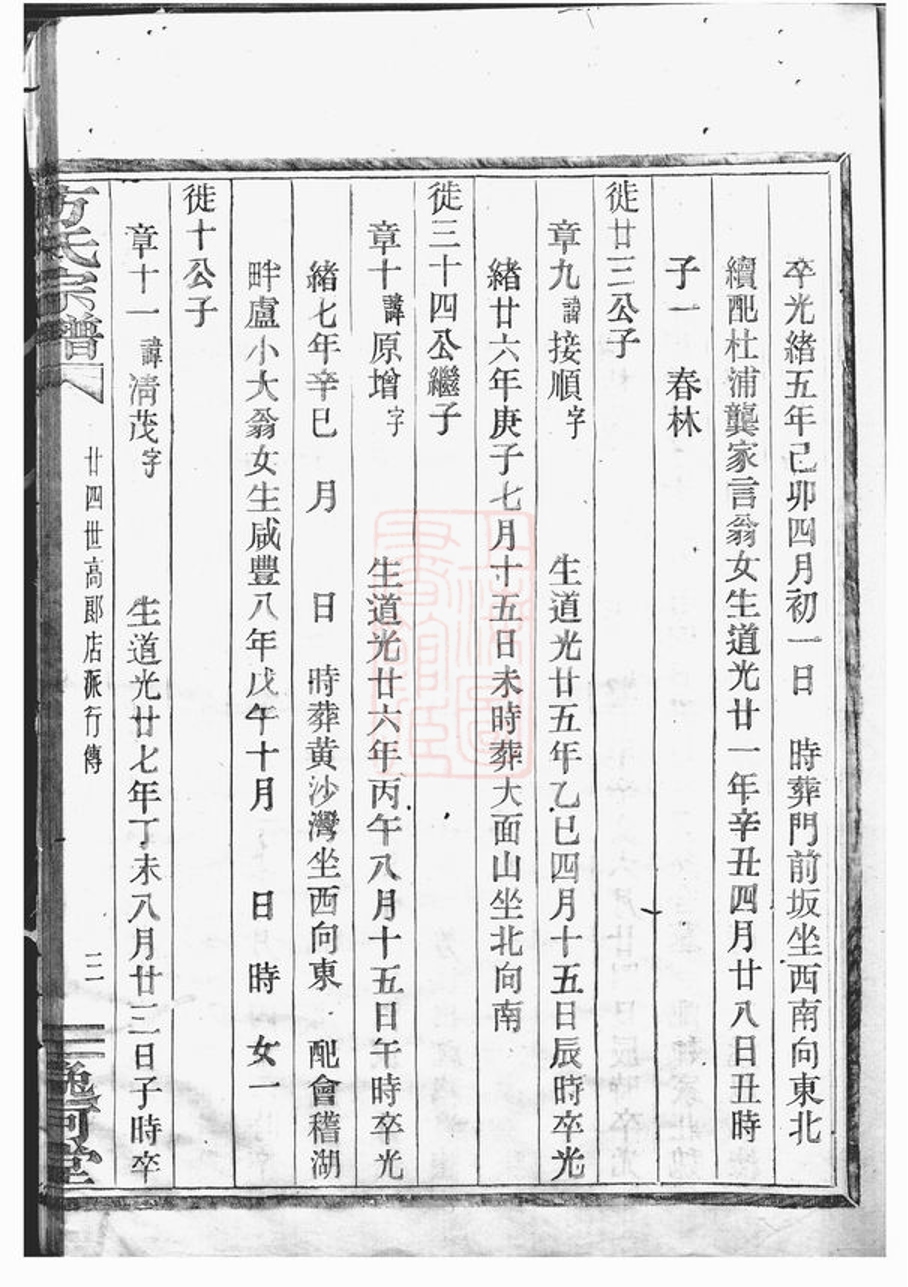 卒光緒五年己卯四月初一日　時葬門前坂坐西南向東北
續配杜浦龔家言翁女生道光廿一年辛丑四月廿八日丑時
子一　春林
徙廿三公子
章九諱接順字　　　生道光廿五年乙巳四月十五日辰時卒光
緒廿六年庚子七月十五日未時葬大面山坐北向南
徙三十四公繼子
章十諱原增字　　　生道光廿六年丙午八月十五日午時卒光
緒七年辛巳　月　　日　時葬黄沙灣坐西向東　配會稽湖
畔盧小大翁女生咸豐八年戊午十月　　日　時　女一
徙十公子
章十一諱淸茂字　　　生道光廿七年丁未八月廿三日子時卒
方氏宗譜
廿四世高郎店派行傳
三